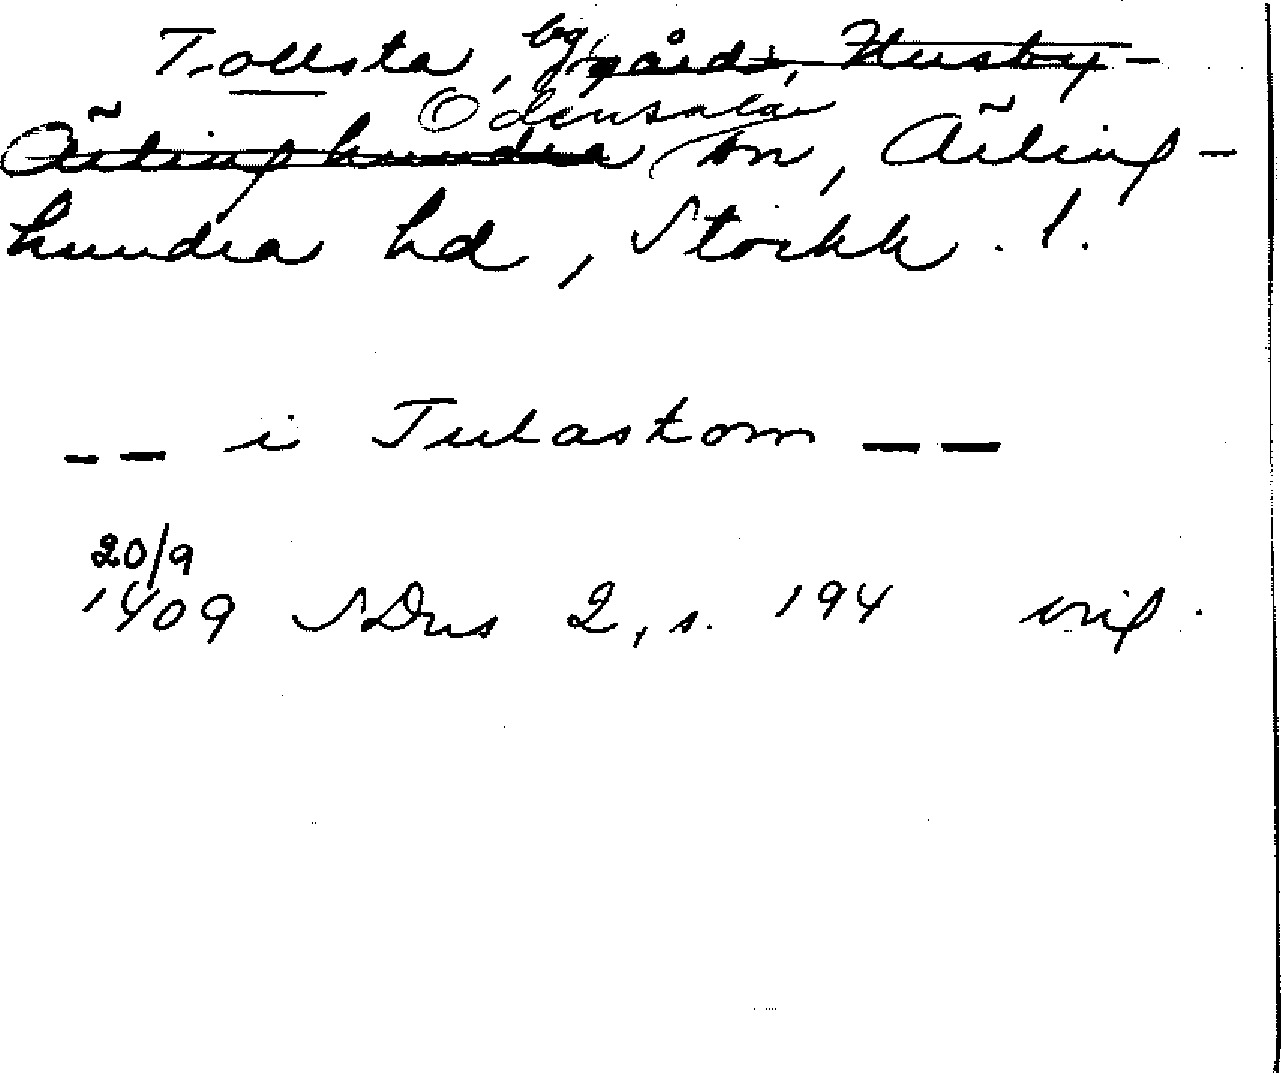 Tollsta, by, gård, Husby-
Odensala
Ärlinghundra sn, Ärling-
hundra hd, Stockh. l.
-- i Tulastom --
20/9
1409 SDns 2, s. 194 orig.